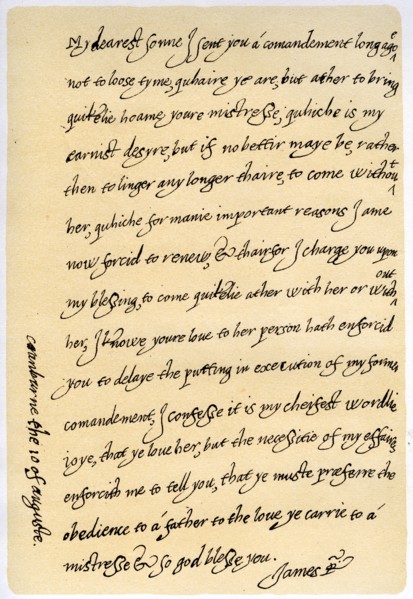 My dearest sonne I sent you a comandement long ago
not to loose tyme, quhaire ye are, but ather to bring
quiklie hoame youre mistresse, quhiche is my
earnist desyre, but if no bettir maye be, rather
then to linger any longer thaire, to come without
her, quhiche for manie important reasons I ame
now forcid to renew, & thairfor I charge you upon
my blessing, to come quiklie ather with her or without
her, I knowe youre love to her person hath enforcid
you to delaye the putting in execution of my former
comandement, I confesse it is my cheifest worldlie
ioye, that ye love her, but the necessitie of my effaires
enforcith me to tell you, that ye muste præferre the
obedience to á father to the love ye carrie to á
mistresse & so god blesse you.
James R
cranburne the 10 of auguste.